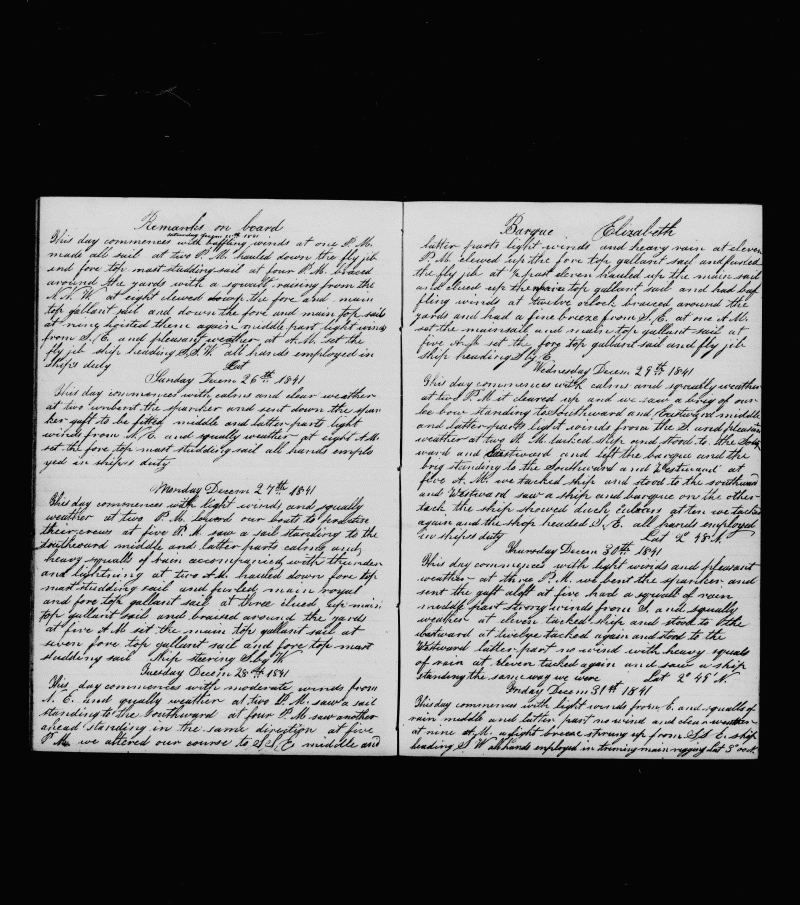 Remarks on board
Saturday Decem 25th 1841
This day commences with baffling winds at one P.M.
made all sail at two P.M. hauled down the fly jib
and fore top mast studding sail at four P.M. braced
around the yards with a squall raising from the
at eight clewed down the fore and main
top gallant sail and down the fore and main top sails
at nine hoisted them again middle part light winds
from S.E. and pleasant weather, at A.M. set the
fly jib ship heading S.S.W. all hands employed in
ship's duty Lat
Sunday Decem 26th 1841
This day commences with calms and clear weather
at two unbent the spanker and sent down the span
ker gaft to be fitted middle and latter parts light
winds from N.E. and squally weather at eight A.M.
set the fore top mast studding sail all hands emplo
yed in ship's duty
Monday Decem 27th 1841
This day commences with light winds and squally
weather at two P.M. lowerd our boats to
their crews at five P.M. saw a sail standing to the
Southward middle and latter parts calms and
heavy squalls of rain accompanied with thunder
and lightning at two A.M. hauled down fore top
mast studding sail and furled main royal
and fore top gallant sail at three clued up main
top gallant sail and braised around the yards
at five A.M. set the main top gallant sail at
seven fore top gallant sail and fore top mast
studding sail Ship steering S. by W.
Tuesday Decem 28th 1841
This day commences with moderate winds from
N.E. and squally weather at two P.M. saw a sail
standing to the Southward at four P.M. saw another
ahead standing in the same direction at five
P.M. we altered our course to S.S.E. middle and
Barque Elizabeth
latter parts light winds and heavy rain at eleven
P.M. clewed up the fore top gallant sail and furled
the fly jib at ½ past eleven hauled up the main sail
and clued up the main top gallant sail and had baf
fling winds at twelve oclock braiced around the
yards and had a fine breeze from S.E. at one A.M.
set the mainsail and main top gallant sail at
five A.M. set the fore top gallant sail and fly jib
ship heading S by E.
Wednesday Decem 29th 1841
This day commences with calms and squally weather
at two P.M. it cleared up and we saw a brig of our
lee bow standing to Southward and Eastward middle
and latter parts light winds from the S. and pleasan
weather at two A.M. tacked ship and stood to the South
ward and Eastward and left the barque and the
brig standing to the Southward and Westward at
five A.M. we tacked ship and stood to the southward
and Westward saw a ship and barque on the other
tack the ship showed duch culeors at ten we tacked
again and the shop headed S.E. all hands employed
in ships duty Lat 2° 48 N.
Thursday Decem 30th 1841
This day commences with light winds and pleasant
weather at three P.M. we bent the spanker and
sent the gaft aloft at five had a squall of rain
middle part strong winds from S. and squally
weather at eleven tacked ship and stood to the
eastward at twelve tacked again and stood to the
Westward latter part no wind with heavy squals
of rain at eleven tacked again and saw a ship
standing the same way we were Lat 2° 45' N.
Friday Decem 31st 1841
This day commences with light winds from E. and squalls of
rain middle and latter part no wind and clear weather
at nine A.M. a light breeze strung up from S.S.E. ship
heading S W all hands employed in main rigging Lat 3°